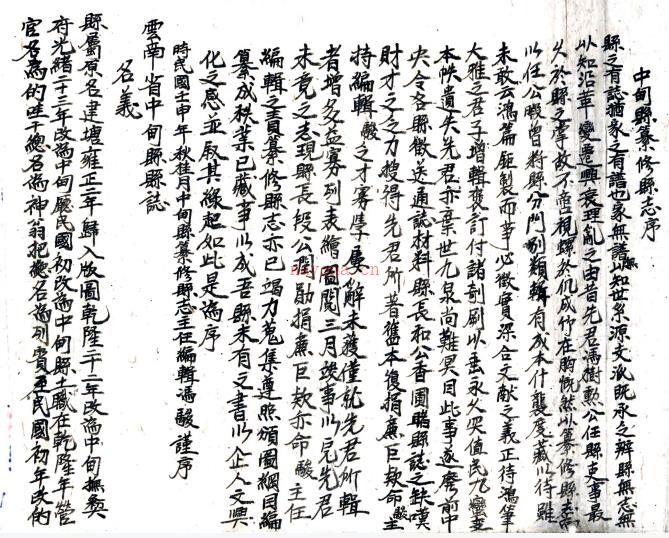 中甸縣纂修縣志序
縣之有誌猶家之有譜也家無譜無以知世系源文派既承之辨縣無志無
以知沿革變遷興衰理亂之由昔先君馮樹勲公任縣吏事最
久於縣之掌故不啻視縲於仉成竹在胸慨然以纂修縣志
以任公暇曾將縣分門別類輯有成本什襲度藏以待雖
未敢云鴻篇鉅製而事必徵實深合文献之義正待鴻筆
大雅之君子增輯變訂付諸剞劂以垂永久突值民九蠻匪
本帙遺失先君亦棄世九泉尚難冥目此事遂寢前中
央令各縣徵送通誌材料縣長和公香圃睹縣誌之缺嘆
財才之之力搜得先君所著舊本復捐廉巨欵命馥主
持編輯馥之才寡學庸解未獲僅就先君所輯
者增多益寡列表繪圖閱三月竣事以完先君
未竟之志現縣長段公閏勛捐廉巨欵亦命馥主任
編輯之責纂修縣志亦已竭力蒐集遵照頒圖綱目編
纂成秩業已蕆事以成吾縣未有之書以企人文興
化之感並叙其緣起如此是為序
時民國壬申年秋桂月中甸縣纂修縣志主任編輯馮馥謹序
雲南省中甸縣縣誌
名義
縣屬原名建塘雍正二年歸入版圖乾隆二十一年改為中甸撫彝
府光緒二十三年改為中甸廳民國初改為中甸縣土職在乾隆年營
官名為的哇千總名為神翁把總名為列賓至民國初年改的